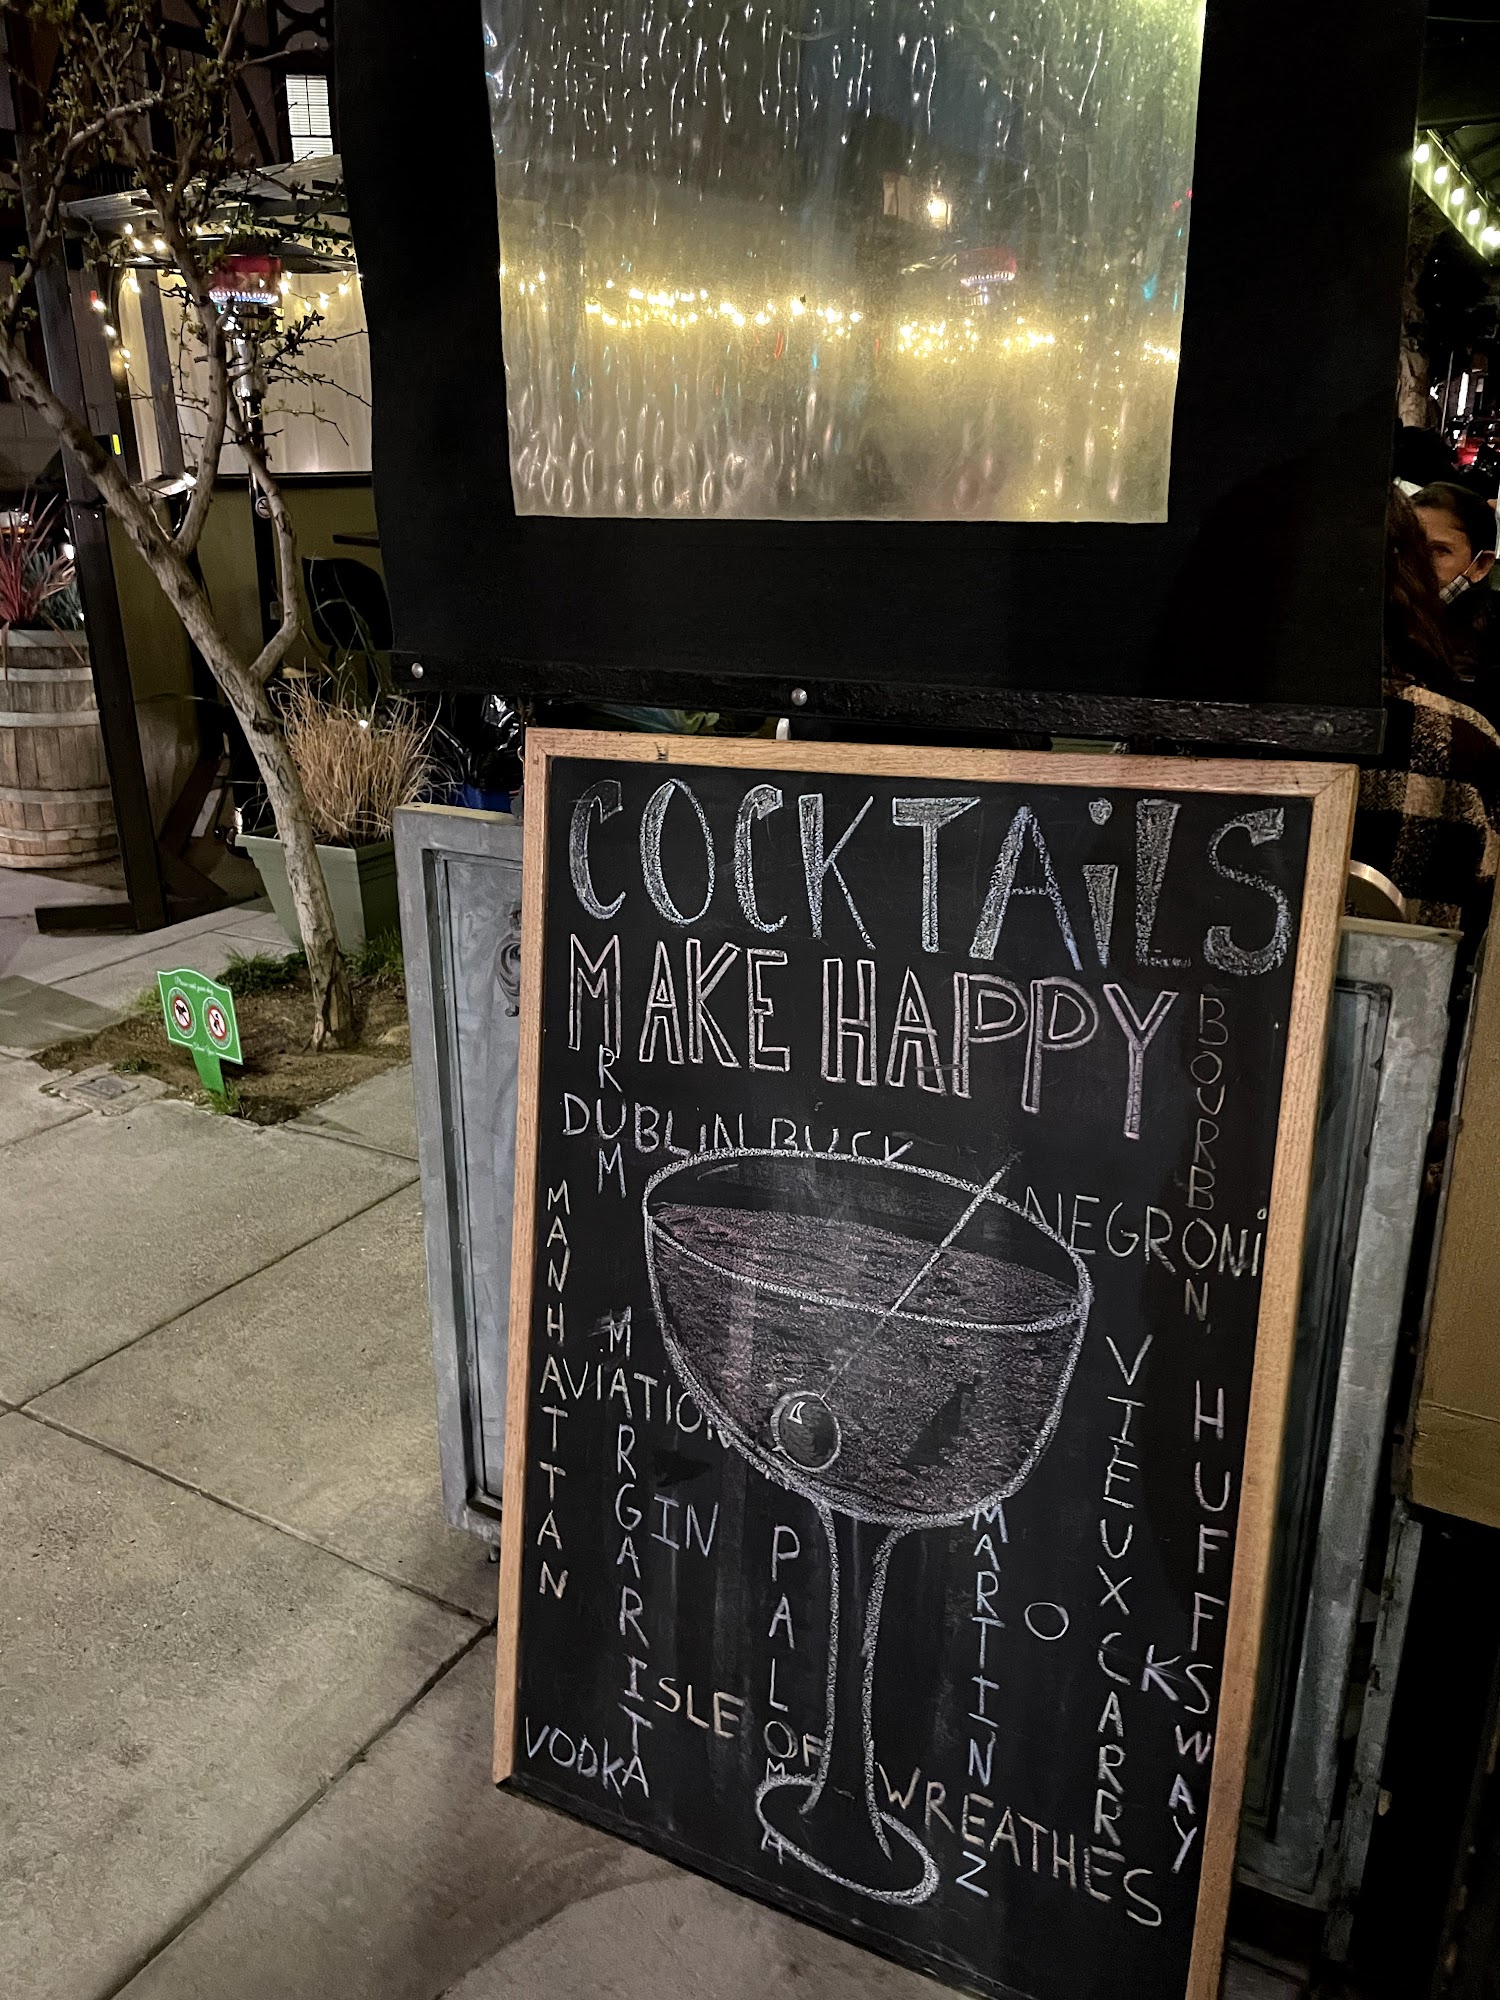 COCKTAiLS
MAKE HAPPY
RUM
DUBLiN BUCK
BOURBON
NEGRONi
MANHATTAN
AVIATION
MARGARITA
GIN
PALOMA
MARTINEZ
VIEUX CARRE
HUFFSWAY
O
K
ISLE OF WREATHES
VODKA